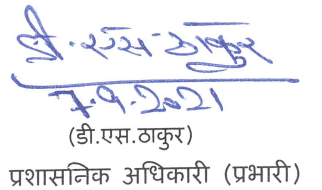 डी.एस.ठाकुर
7.9.2021
(डी.एस.ठाकुर)
प्रशासनिक अधिकारी (प्रभारी)